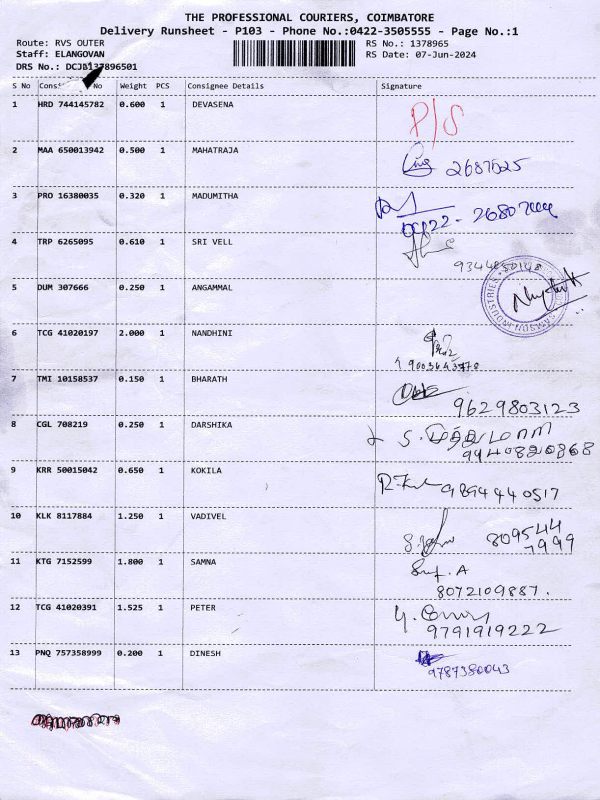 THE PROFESSIONAL COURIERS, COIMBATORE
Delivery Runsheet - P103 - Phone No.:0422-3505555 - Page No.:1
Route: RVS OUTER RS No.: 1378965
Staff: ELANGOVAN RS Date: 07-Jun-2024
DRS No.: DCJB137896501
S No No Weight PCS Consignee Details Signature
1 HRD 744145782 0.600 1 DEVASENA P/S
2 MAA 650013942 0.500 1 MAHATRAJA 2687525
3 PRO 16380035 0.320 1 MADUMITHA
4 TRP 6265095 0.610 1 SRI VELL
5 DUM 307666 0.250 1 ANGAMMAL
6 TCG 41020197 2.000 1 NANDHINI
7 TMI 10158537 0.150 1 BHARATH
9629803123
8 CGL 708219 0.250 1 DARSHIKA
9940820868
9 KRR 50015042 0.650 1 KOKILA 9894440517
10 KLK 8117884 1.250 1 VADIVEL 809544
7999
11 KTG 7152599 1.800 1 SAMNA
8072109887.
12 TCG 41020391 1.525 1 PETER
9791919222
13 PNQ 757358999 0.200 1 DINESH
9787380043